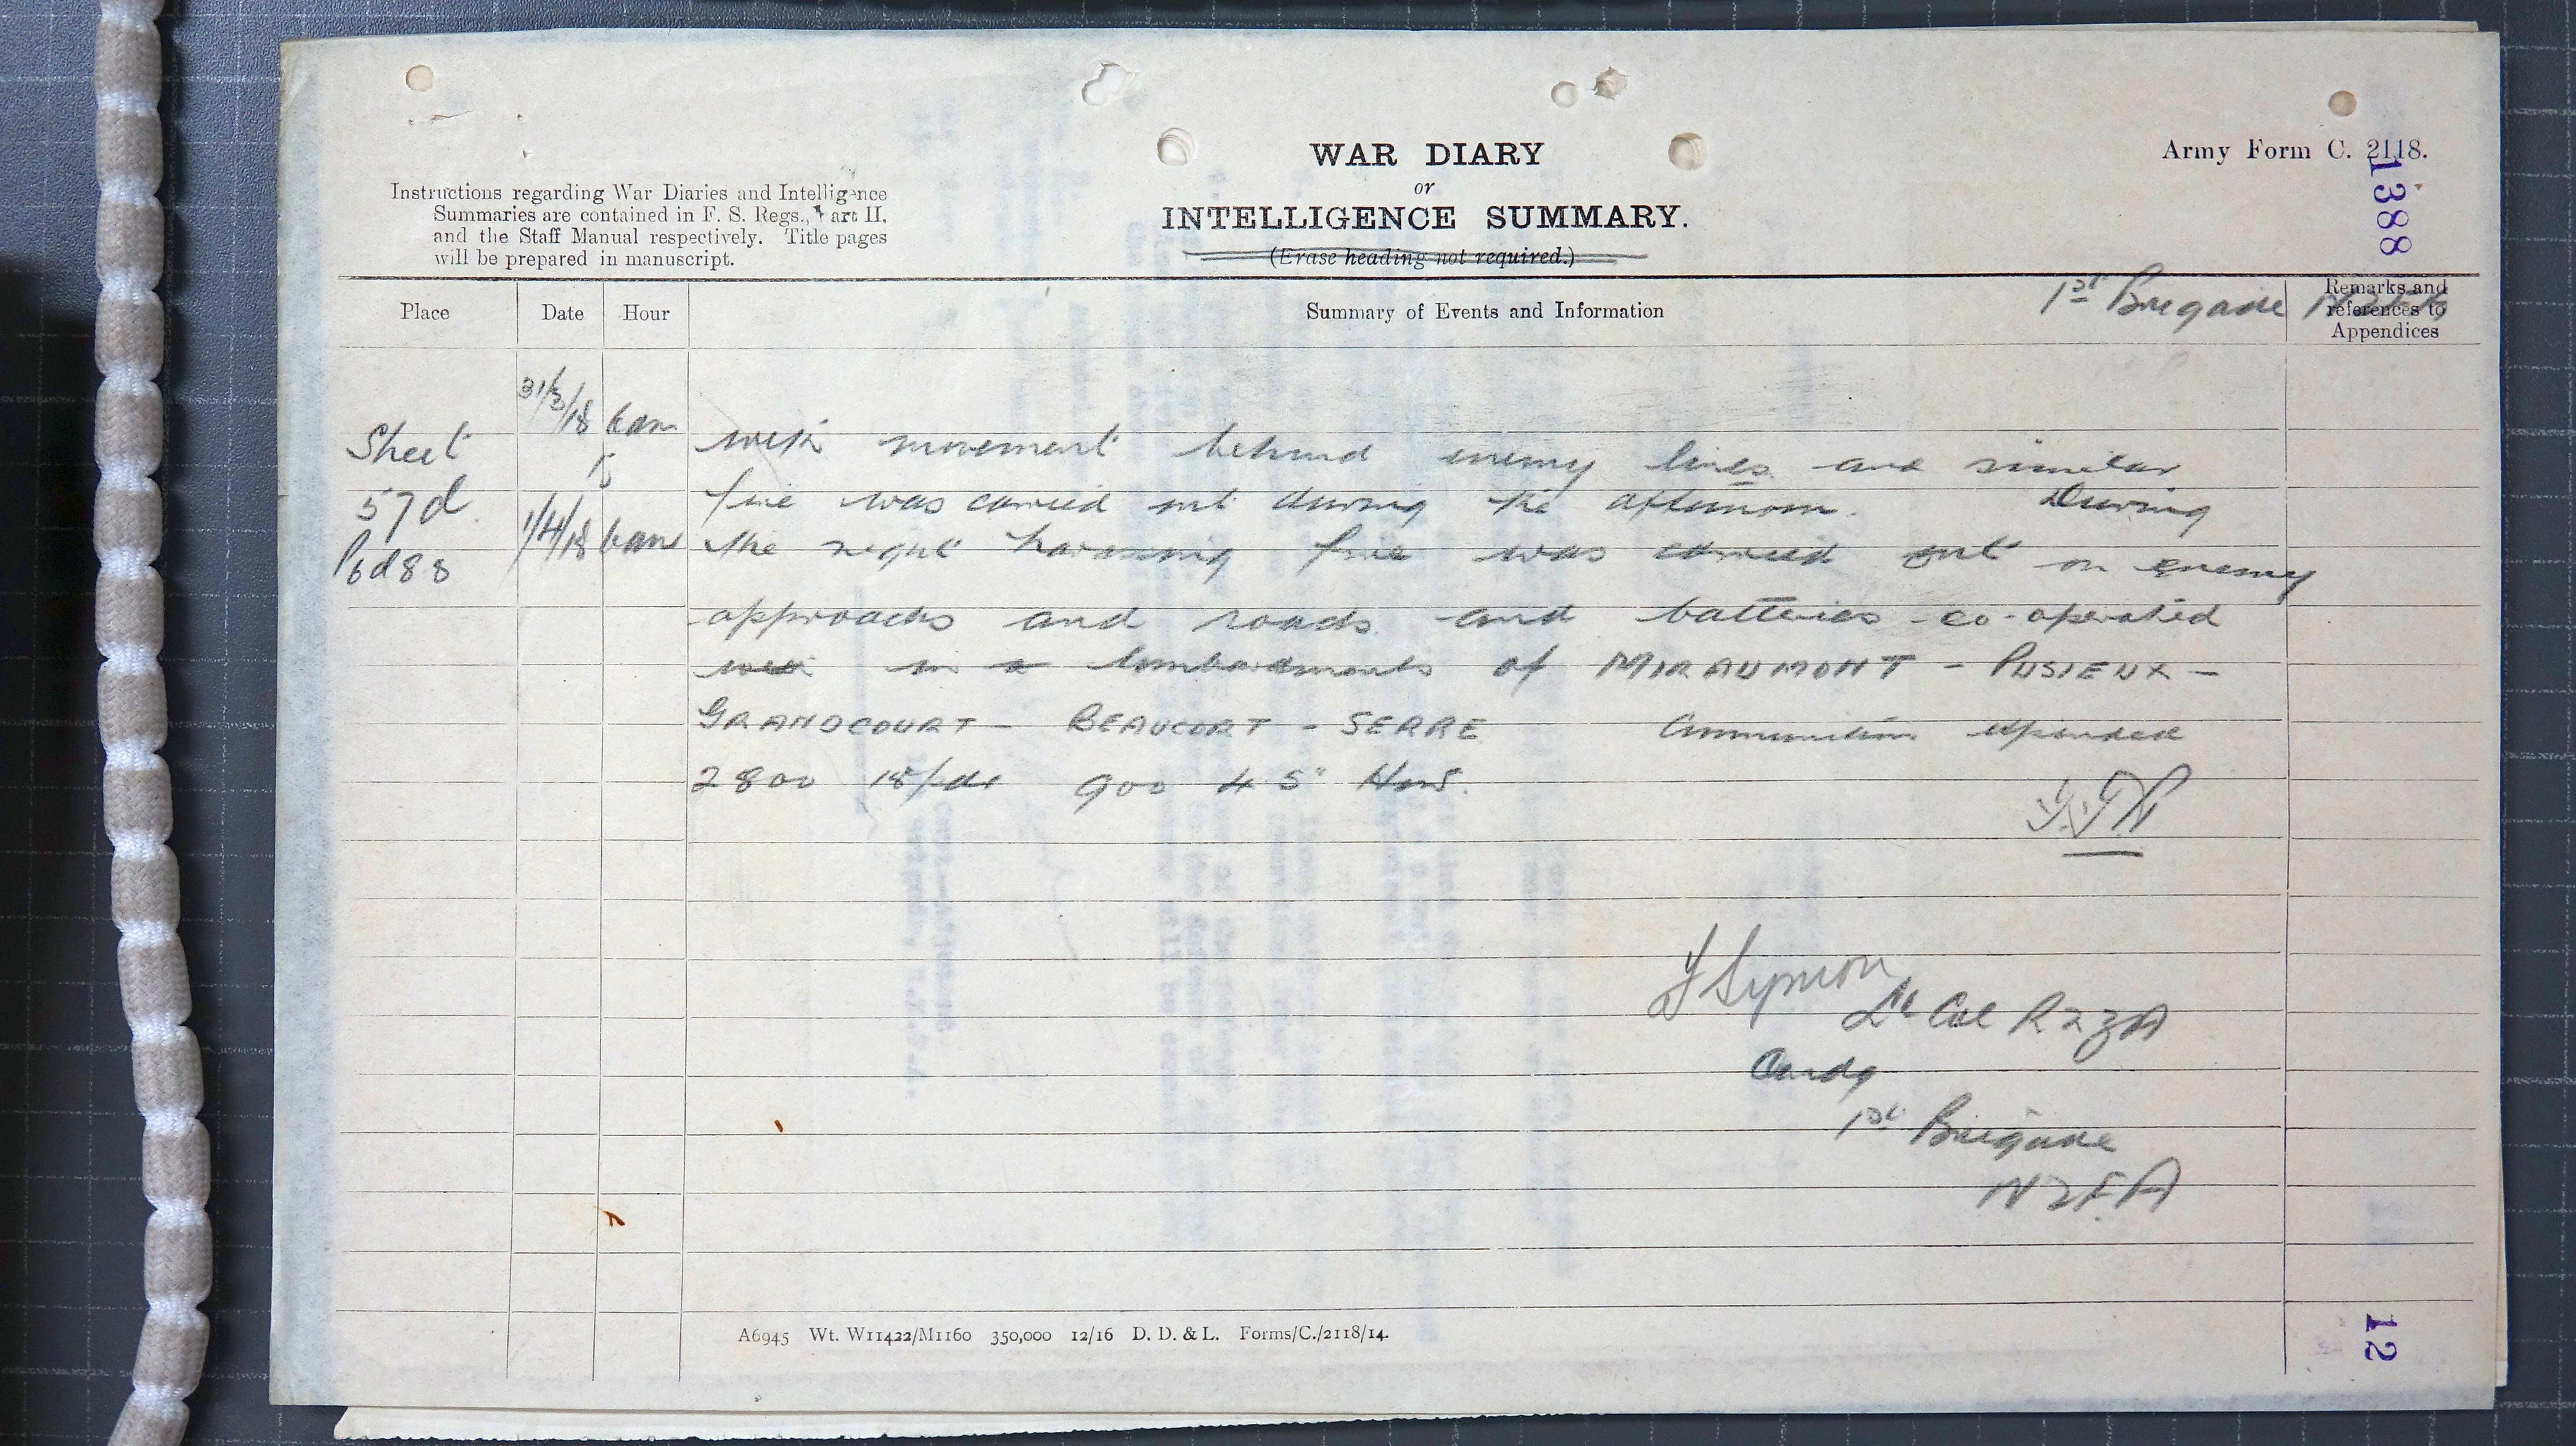 WAR DIARY
or
INTELLIGENCE SUMMARY.
(Erase heading not required.)
Army Form C. 2118.
1388
Instructions regarding War Diaries and Intelligence
Summaries are contained in F. S. Regs., Part II.
and the Staff Manual respectively. Title pages
will be prepared in manuscript.
1st Brigade NZFA
Place Date Hour Summary of Events and Information Remarks and references to Appendices
Sheet
57d
P6d88
31/3/18 6am
to
1/4/18 6am
with movement behind enemy lines and similar
fire was carried out during the afternoon. During
the night harassing fire was carried out on enemy
approachs and roads and batteries co-operated
with in a bombardments of MIRAUMONT - PUSIEUX -
GRANDCOURT - BEAUCORT - SERRE Ammunition expended
2800 18/pdr 900 4 5" Hows.
F Symon
Lt Col R N Z A
Comdg
1st Brigade
N Z F. A
A6945 Wt. W11422/M1160 350,000 12/16 D. D. & L. Forms/C./2118/14.
12